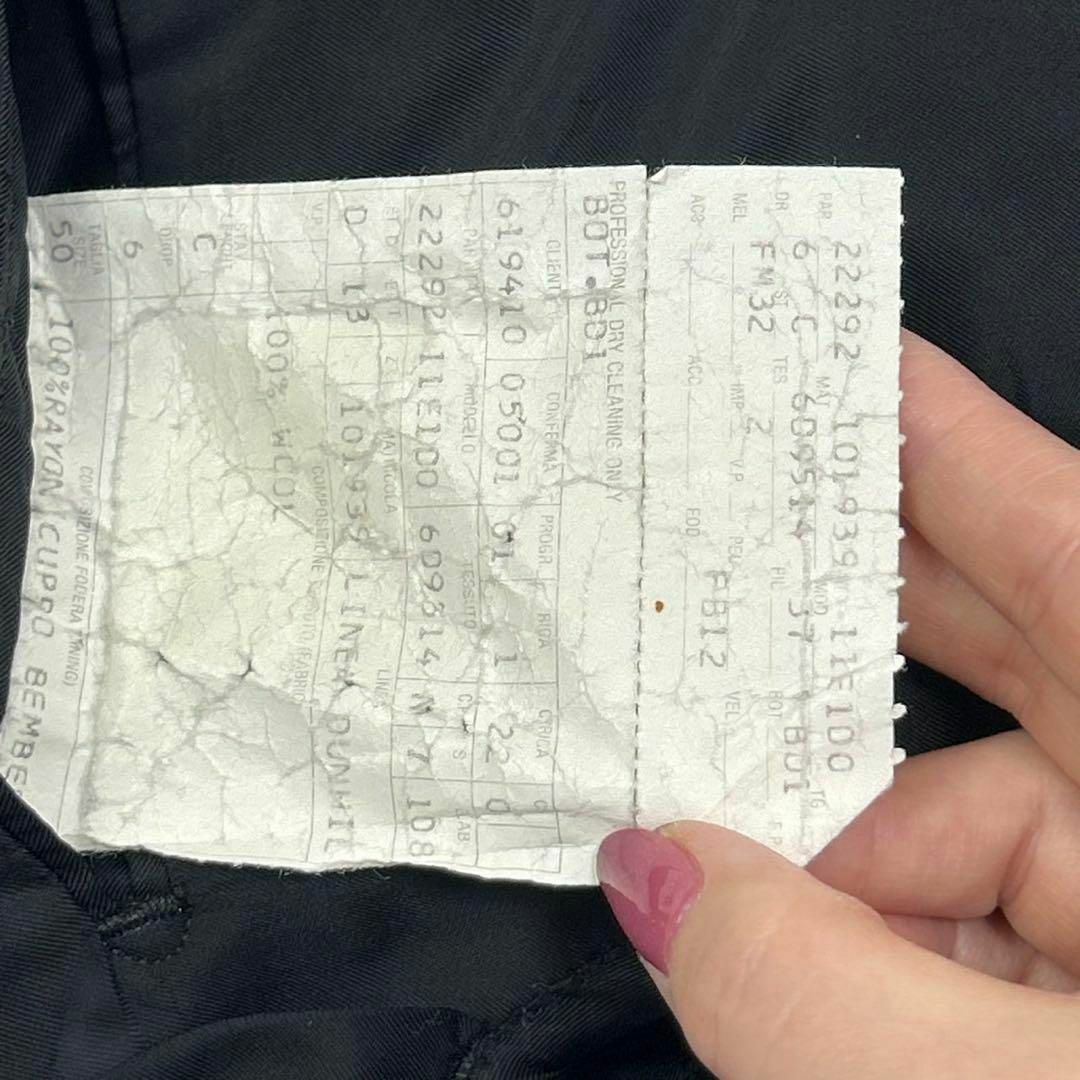 PAR 22292 MAT 101939 MOD 11E100 TG
DR 6 ST C TES 609514 PIL 37 BOT B01 F.P
MEL FM32 IMP 2 V.P PEU FB12 VEL
ACS ACC FOD
PROFESSIONAL DRY CLEANING ONLY
BOT.B01
CLIENTE CONFERMA PROGR. RIGA CTRIGA
619410 05001 01 1 22 0
PARTITA MODELLO TESSUTO LAB
22292 11E100 609514 N 7 108
MATRICOLA LINEA
D 13 101939 LINEA DUNHIL
V.P. COMPOSIZIONE TESSUTO (FABRIC)
100% WOOL
STAT
C
DROP
6
TAGLIA
SIZE COMPOSIZIONE FODERA (LINING)
50 100%RAYON CUPRO BEMBE